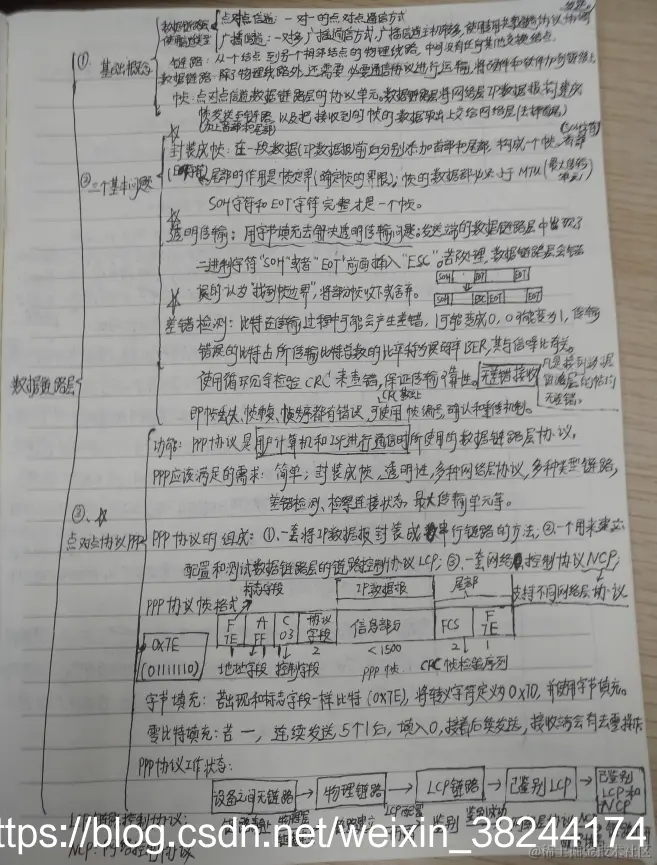 数据链路层
① 基础概念
数据链路层使用信道类型
点对点信道：一对一的点对点通信方式
广播信道：一对多广播通信方式，广播信道上主机多，使用
链路：从一个结点到另个相邻结点的物理线路，中间没有任何其他交换结点
数据链路：除了物理线路外，还需要必要通信协议进行运输，将硬件和软件加到链路上
帧：点对点信道数据链路层的协议单元。数据链路层将网络层IP数据报
帧发送到链路以及把接收到的帧的数据取出上交给网络层
②三个基本问题
封装成帧：在一段数据(IP数据报)前后分别添加首部和尾部，构成一个帧。首部
尾部的作用是帧定界(确定帧的界限)；帧的数据部 MTU (最大传输单元)
SOH字符和EOT字符完整才是一个帧。
透明传输：用字节填充去解决透明传输问题。发送端的数据链路层中出现了
二进制字符"SOH"或者"EOT"前面插入"ESC"。若 处理，数据链路层会错
误的认为"找到帧边界"，将部分帧收下或舍弃。
SOH EOT EOT
SOH ESC EOT EOT
差错检测：比特在传输过程中可能会产生差错，1可能变成0，0可能变为1，传输
错误的比特占所传输比特总数的比率称为误码率BER，其与信噪比有关。
使用循环冗余检验CRC来查错，保证传输可靠性。 无差错接收
即帧丢失、帧重复、帧失序都有错误，可使用帧编号，确认和重传机制。
③、☆
点对点协议PPP
功能：PPP协议是用户计算机和ISP进行通信时所使用的数据链路层协议。
PPP应该满足的需求：简单；封装成帧，透明性，多种网络层协议，多种类型链路，
差错检测、检察连接状态，最大传输单元等。
PPP协议的组成：①、一套将IP数据报封装成串行链路的方法；②一个用来建立、
配置和测试数据链路层的链路控制协议LCP；③、一套网络控制协议NCP；
支持不同网络层协议
标志字段 IP数据报 尾部
PPP协议帧格式
F 7E A FF C 03 协议字段 信息部分 FCS F 7E
1 1 1 2 <1500 2 1
0x7E
(01111110)
地址字段 控制字段 PPP帧 CRC帧检验序列
字节填充：若出现和标志字段一样比特(0x7E)，将转义字符定义为0x7D，并使用字节填充。
零比特填充：若一，连续发送5个1后，填入0，接着后续发送，接收端会有去零操作
PPP协议工作状态：
设备之间无链路 → 物理链路 → LCP链路 → 已鉴别LCP → 已鉴别LCP和NCP
LCP配置 鉴别 鉴别成功
https://blog.csdn.net/weixin_38244174
@稀土掘金技术社区